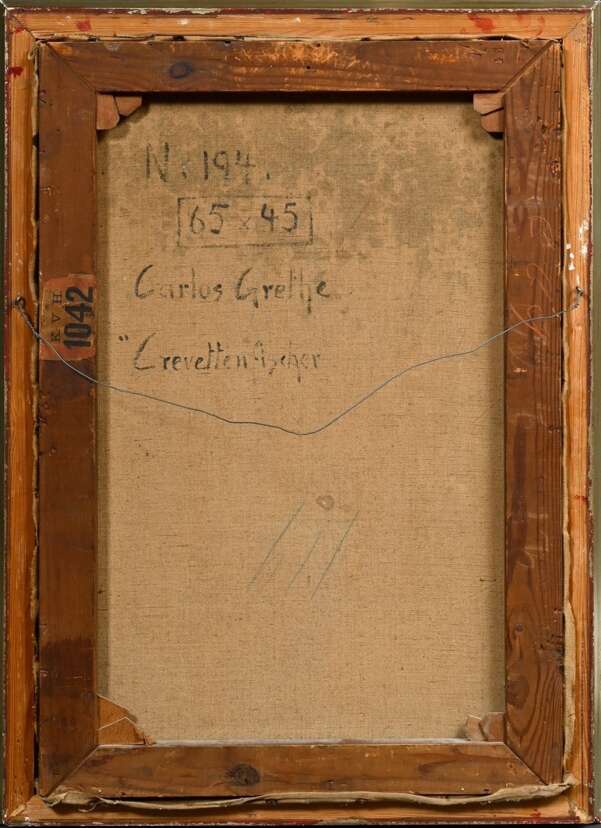 N: 194.
65 x 45
Carlos Grethe
"Crevettenfischer
KVH
1042